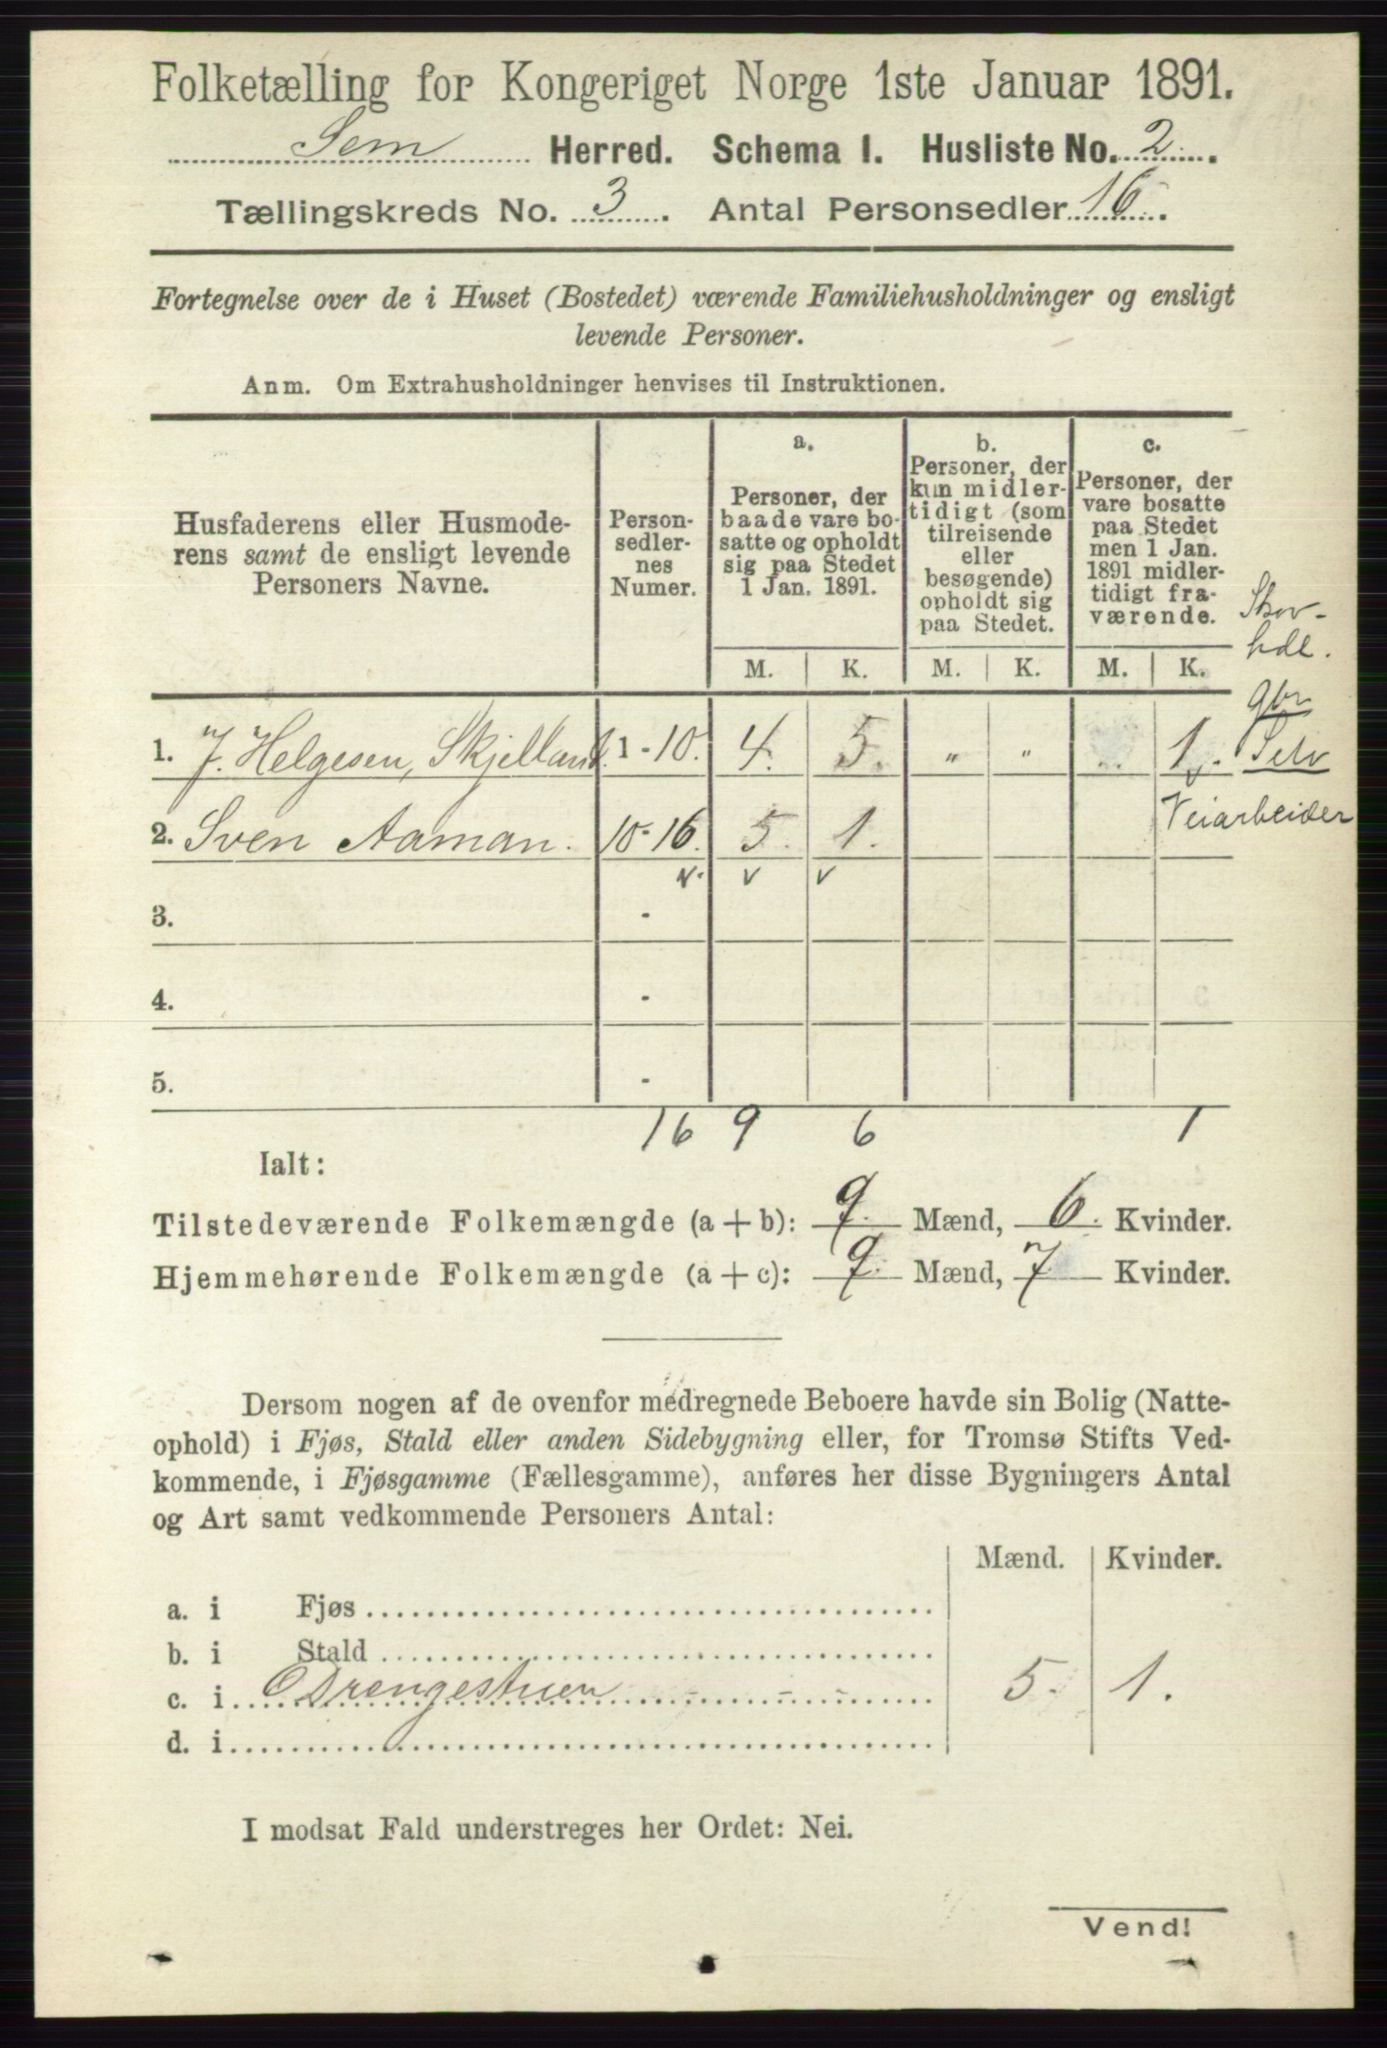 Folketælling for Kongeriget Norge 1ste Januar 1891.
Sem Herred. Schema I. Husliste No. 2.
Tællingskreds No. 3. Antal Personsedler 16.
Fortegnelse over de i Huset (Bostedet) værende Familiehusholdninger og ensligt
levende Personer.
Anm. Om Extrahusholdninger henvises til Instruktionen.
Husfaderens eller Husmode-
rens samt de ensligt levende
Personers Navne.
Person-
sedler-
nes
Numer.
a.
Personer, der
baade vare bo-
satte og opholdt
sig paa Stedet
1 Jan. 1891.
b.
Personer, der
kun midler-
tidigt (som
tilreisende
eller
besøgende)
opholdt sig
paa Stedet.
c.
Personer, der
vare bosatte
paa Stedet
men 1 Jan.
1891 midler-
tidigt fra-
værende.
Skov-
hdl.
M. K. M. K. M. K.
gbr
1. J. Helgesen, Skjelland. 1-10. 4. 5. " " 1. Selv
Veiarbeider
2. Sven Aaman. 10-16. 5. 1.
v. v v
3. -
4. -
5. -
16 9 6 1
Ialt:
Tilstedeværende Folkemængde (a + b): 9. Mænd, 6. Kvinder.
Hjemmehørende Folkemængde (a + c): 9. Mænd, 7 Kvinder.
Dersom nogen af de ovenfor medregnede Beboere havde sin Bolig (Natte-
ophold) i Fjøs, Stald eller anden Sidebygning eller, for Tromsø Stifts Ved-
kommende, i Fjøsgamme (Fællesgamme), anføres her disse Bygningers Antal
og Art samt vedkommende Personers Antal:
Mænd. Kvinder.
a. i Fjøs
b. i Stald
c. i Drengestuen 5. 1.
d. i
I modsat Fald understreges her Ordet: Nei.
Vend!